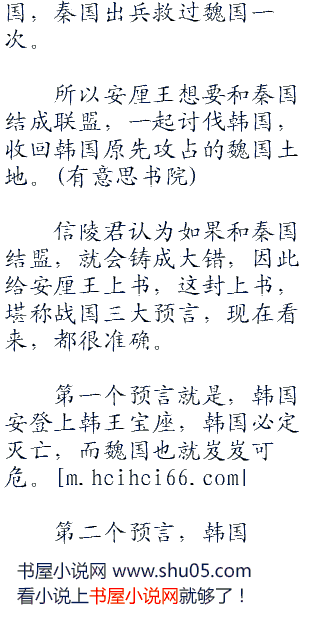 国，秦国出兵救过魏国一
次。
所以安厘王想要和秦国
结成联盟，一起讨伐韩国，
收回韩国原先攻占的魏国土
地。(有意思书院)
信陵君认为如果和秦国
结盟，就会铸成大错，因此
给安厘王上书，这封上书，
堪称战国三大预言，现在看
来，都很准确。
第一个预言就是，韩国
安登上韩王宝座，韩国必定
灭亡，而魏国也就岌岌可
危。[m.hcihci66.com|
第二个预言，韩国
书屋小说网 www.shu05.com
看小说上书屋小说网就够了！